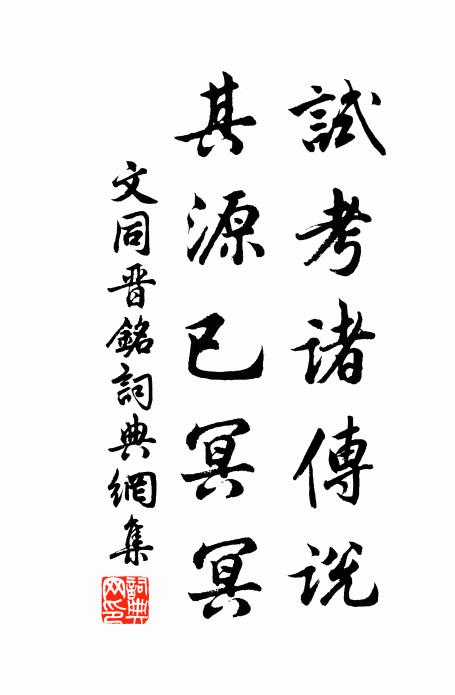 試考諸傳說
其源已冥冥
文同晋銘詞典網集
詞典
网印